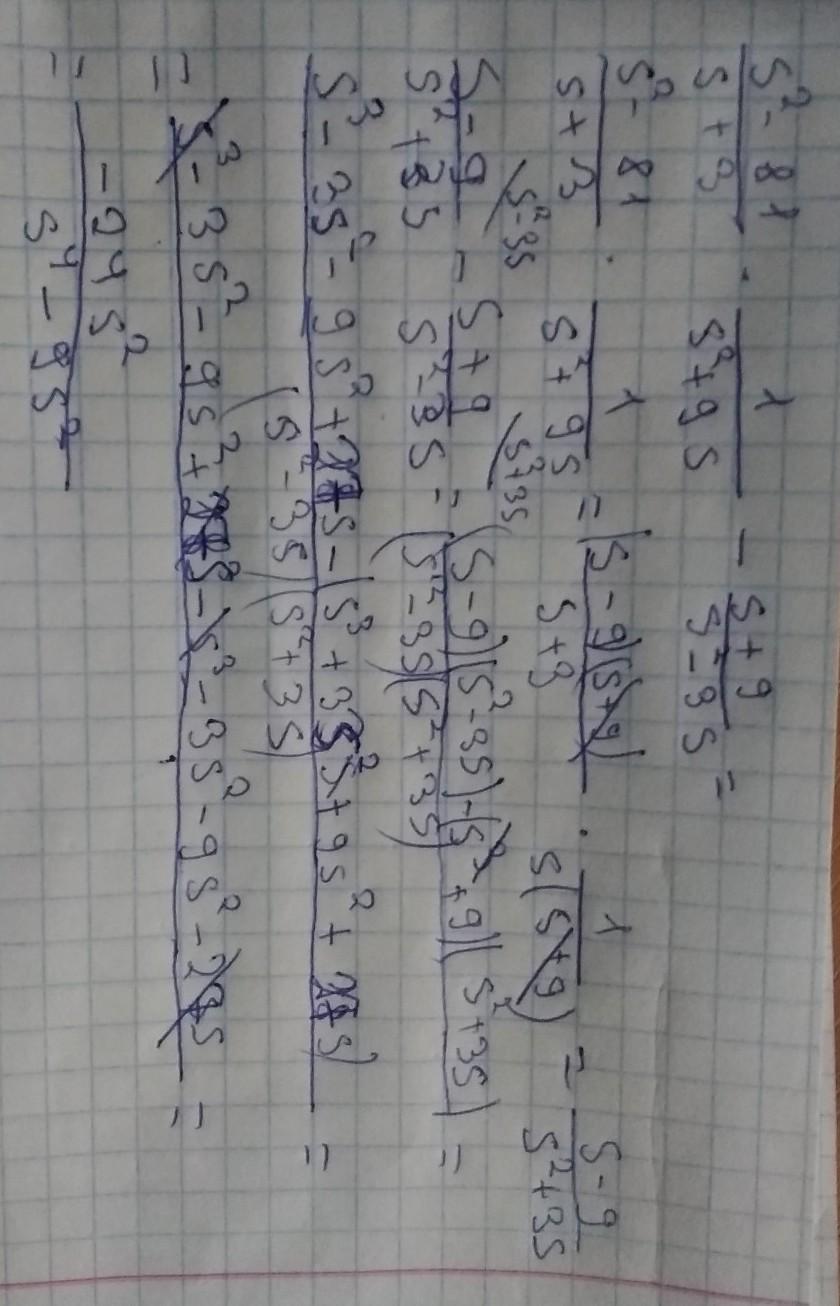 (s² - 81)/(s + 3) · 1/(s² + 9s) - (s + 9)/(s² - 9s) =
(s² - 81)/(s + 3) · 1/(s² + 9s) = (s - 9)(s + 9)/(s + 3) · 1/(s(s + 9)) = (s - 9)/(s² + 3s)
(s - 9)/(s² + 3s) \s²-3s - (s + 9)/(s² - 3s) \s²+3s = ((s - 9)(s² - 3s) - (s + 9)(s² + 3s))/((s² - 3s)(s² + 3s)) =
(s³ - 3s² - 9s² + 27s - (s³ + 3s² + 9s² + 27s))/((s² - 3s)(s² + 3s)) =
= s³ - 3s² - 9s² + 27s - s³ - 3s² - 9s² - 27s =
= (-24s²)/(s⁴ - 9s²)